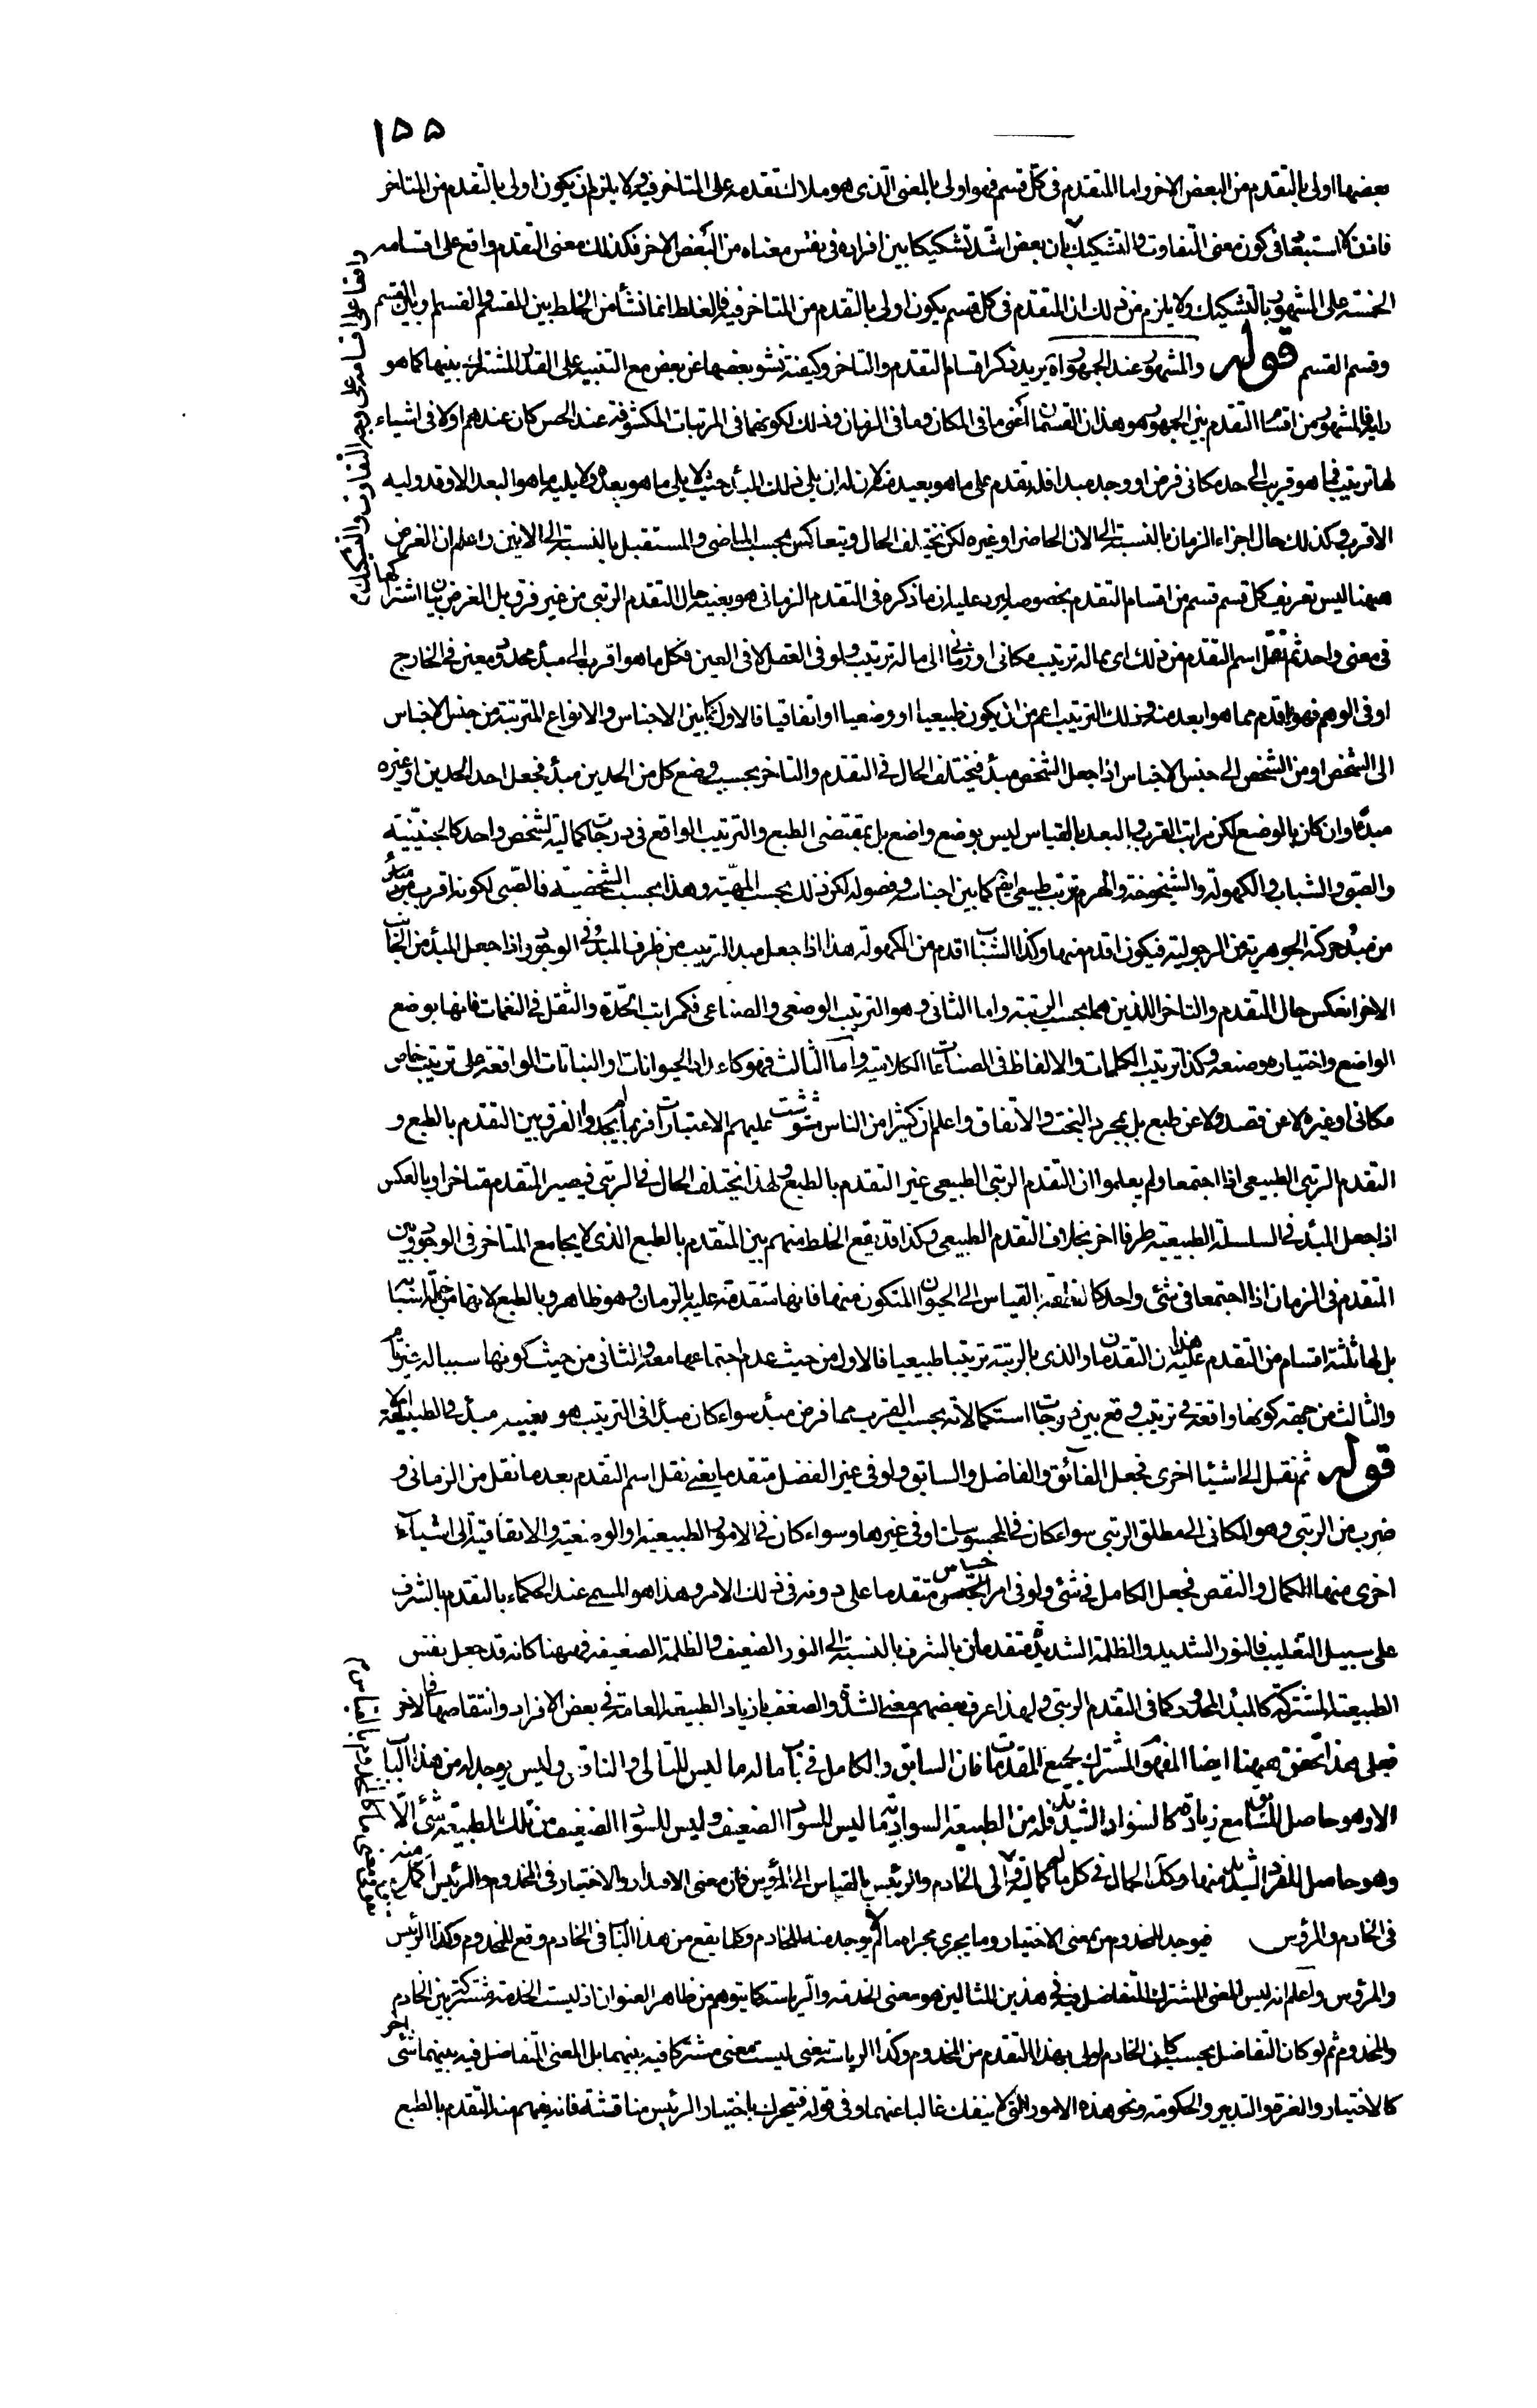 ١٥٥
بعضها اولى بالتقدم من البعض الاخر واما المتقدم فى كل قسم فهو اولى بالمعنى الذى هو ملاك تقدمه على المتاخر فيه ولا يلزم ان يكون اولى بالتقدم من المتاخر
فاذن لا استبعاد فى كون معنى التفاوت والتشكيك بان بعض اشد تشكيكا بين افراده فى نفس معناه من البعض الاخر فكذلك معنى التقدم واقع على اقسامه
الخمسة على المشهور بالتشكيك ولا يلزم من ذلك ان المتقدم فى كل قسم يكون اولى بالتقدم من المتاخر فيه فالغلط انما نشأ من الخلط بين المقسم والقسم او بين القسم
وقسم القسم قوله والمشهور عند الجمهور اه يريد ذكر اقسام التقدم والتاخر وكيفية نشو بعضها عن بعض مع التنبيه على القدر المشترك بينها كما هو
رايه فالمشهور من اقسام التقدم بين الجمهور هو هذان القسمان اعنى ما فى المكان وما فى الزمان وذلك لكونهما فى المرتبات المكشوفة عند الحس كان عندهم اولا فى اشياء
لها ترتيب فما هو قريب الى حد مكانى فرض او وجد مبدا فله تقدم على ما هو بعيد منه لان له ان يلى ذلك المبدأ حيث لا يلى ما هو بعده ولا يليه ما هو البعد الا وقد وليه
الاقرب وكذلك حال اجزاء الزمان بالنسبة الى الان الحاضر او غيره لكن يختلف الحال ويتعاكس بحسب الماضى والمستقبل بالنسبة الى الانين واعلم ان الغرض
ههنا ليس تعريف كل قسم قسم من اقسام التقدم بخصوصه ليرد عليه ان ما ذكره فى التقدم الزمانى هو بعينه حال التقدم الرتبى من غير فرق بل الغرض بيان اشتراكها
فى معنى واحد ثم نقل اسم التقدم من ذلك اى مما له ترتيب مكانى او زمانى الى ما له ترتيب ولو فى العقل لا فى العين فكل ما هو اقرب الى مبدأ محدود معين فى الخارج
او فى الوهم فهو اقدم مما هو ابعد منه وذلك الترتيب اعم من ان يكون طبيعيا او وضعيا او اتفاقيا فالاول كما بين الاجناس والانواع المترتبة من جنس الاجناس
الى الشخص او من الشخص الى جنس الاجناس اذا جعل الشخص مبدأ فيختلف الحال فى التقدم والتاخر بحسب وضع كل من الحدين مبدأ فجعل احد الحدين او غيره
مبدءا وان كان بالوضع لكن مراتب القرب والبعد بالقياس ليس بوضع واضع بل بمقتضى الطبع والترتيب الواقع فى درجات كمالية لشخص واحد كالجنينية
والصبى والشباب والكهولة والشيخوخة والهرم ترتيب طبيعى ايضا كما بين اجناسه وفصوله لكن ذلك بحسب المهية وهذا بحسب الشخصية فالصبى لكونه اقرب
من مبدء حركته الجوهرية من الرجولية فيكون اقدم منها وكذا الشباب اقدم من الكهولة هذا اذا جعل مبدا الترتيب من طرف المبدء فى الوجود واذا جعل المبدأ من الجانب
الاخر انعكس حال المتقدم والتاخر اللذين هما بحسب الرتبة واما الثانى وهو الترتيب الوضعى والصناعى فكمراتب الحدة والثقل فى النغمات فانها بوضع
الواضع واختياره وصنعه وكذا ترتيب الكلمات والالفاظ فى الصناعات الكلامية واما الثالث فهو كاعداد الحيوانات او النباتات الواقعة على ترتيب خاص
مكانى او غيره لا عن قصد ولا عن طبع بل بمجرد البخت والاتفاق واعلم ان كثيرا من الناس تشوشت عليهم الاعتبارات فربما لم يجدوا الفرق بين التقدم بالطبع و
التقدم الرتبى الطبيعى اذا اجتمعا ولم يعلموا ان التقدم الرتبى الطبيعى غير التقدم بالطبع ولهذا يختلف الحال فى الرتبى فيصير المتقدم متاخرا وبالعكس
اذا جعل المبدأ فى السلسلة الطبيعية طرفا اخر بخلاف التقدم الطبيعى وكذا قد يقع الخلط منهم بين المتقدم بالطبع الذى لا يجامع المتاخر فى الوجود وبين
المتقدم فى الزمان اذا اجتمعا فى شئ واحد كالنطفة بالقياس الى الحيوان المتكون منها فانها متقدمة عليه بالزمان وهو ظاهر وبالطبع لانها من جملة اسبابه
بل لها ثلثة اقسام من التقدم عليه هذان التقدمان والذى بالرتبة ترتيبا طبيعيا فالاول من حيث عدم اجتماعها معه والثانى من حيث كونها سببا له غير تام
والثالث من جهة كونها واقعة فى ترتيب وقع بين درجات استكمالاته بحسب القرب مما فرض مبدأ سواء كان مبدأ فى الترتيب هو بعينه مبدأ فى الطبيعة ام لا
قوله ثم نقل الى اشياء اخرى فجعل الفائق والفاضل والسابق ولو فى غير الفضل متقدما يعنى نقل اسم التقدم بعد ما نقل من الزمانى و
ضرب من الرتبى وهو المكانى الى مطلق الرتبى سواء كان فى المحسوسات او فى غيرها وسواء كان فى الامور الطبيعية او الوضعية والاتفاقية الى اشياء
اخرى منها الكمال والنقص فجعل الكامل فى شئ ولو فى امر الخساس متقدما على دونه فى ذلك الامر وهذا هو المسمى عند الحكماء بالتقدم بالشرف
على سبيل التغليب فالنور الشديد والظلمة الشديدة متقدمان بالشرف بالنسبة الى النور الضعيف والظلمة الضعيفة فههنا كانه قد جعل نفس
الطبيعة المشتركة كالمبدأ المحدود كما فى التقدم الرتبى ولهذا عرف بعضهم معنى الشدة والضعف بازياد الطبيعة العامة فى بعض الافراد وانتقاصها فى الاخر
فعلى هذا تحقق ههنا ايضا المفهوم المشترك لجميع المقدمات فان السابق والكامل فى باب ما له ما ليس للتالى والناقص وليس يوجد له من هذا الباب
الا وهو حاصل للسابق مع زيادة كالسواد الشديد فله من الطبيعة السوادية ما ليس للسواد الضعيف وليس للسواد الضعيف من تلك الطبيعة شئ الا
وهو حاصل للفرد الشديد منها وكذا الحال فى كل ما له كمالية قوله الى الخادم والرئيس بالقياس الى المرؤوس فان معنى الاقتدار والاختيار فى المخدوم والرئيس اكمل منه
فى الخادم والمرؤس فيوجد للمخدوم من معنى الاختيار وما يجرى مجراه ما لا يوجد منه للخادم وكلما يقع من هذا الباب فى الخادم وقع للمخدوم وكذا الرئيس
والمرؤس واعلم انه ليس المعنى المشترك المتفاضل فيه فى هذين المثالين هو معنى الخدمة والرياسة كما يتوهم من ظاهر العنوان اذ ليست الخدمة مشتركة بين الخادم
والمخدوم ثم لو كان التفاضل بحسبه كان الخادم اولى بهذا التقدم من المخدوم وكذا الرياسة تبغى ليست معنى مشتركا فيه بينهما بل المعنى المتفاضل فيه بينهما شئ اخر
كالاختيار والغرض والتدبير والحكومة ونحو هذه الامور التى لا ينفك غالبا عنهما وفى قوله فيتحرك باختيار الرئيس مناقشة فانه يفهم منه التقدم بالطبع
واقعا على اقسامه على وجه التفاوت والتشكيك